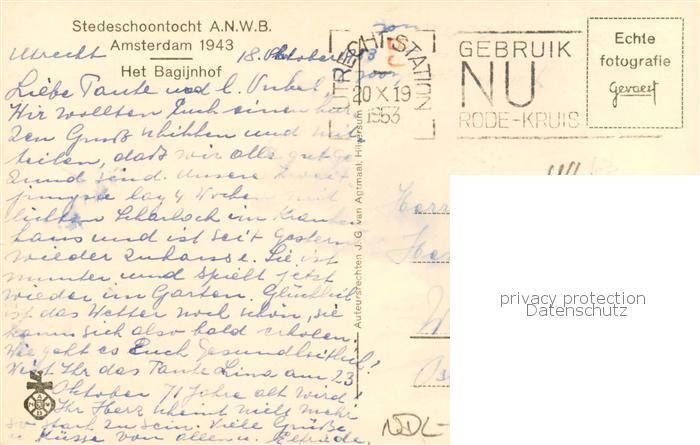 Stedeschoontocht A.N.W.B.
Amsterdam 1943
Het Bagijnhof
Utrecht 18. Oktober 1953
Liebe Tante und l. Onkel!
Wir wollten Euch einen kur-
zen Gruß schikken und mit
teilen, daß wir alle gut ge
sund sind. Unsere zweit
jüngste lag 4 Wochen mit
leichten Scharlach im Kranken
haus und ist seit gestern
wieder zuhause. Sie ist
munter und spielt jetzt
wieder im Garten. Glücklich
ist das Wetter noch schön, sie
kann sich also bald erholen.
Wie geht es Euch gesundheitlich?
Wißt Ihr das Tante Lina am 23
Oktober 71 Jahre alt wird
Ihr Herz scheint nicht mehr
so stark zu sein. Viele Grüße
u Küsse von allen u. Elfriede.
UTRECHT-STATION
20 X 19
1953
GEBRUIK
NU
RODE-KRUIS
Echte
fotografie
Gevaert
Auteursrechten J. G. van Agtmaal, Hilversum
Herrn
privacy protection
Datenschutz
NDL-